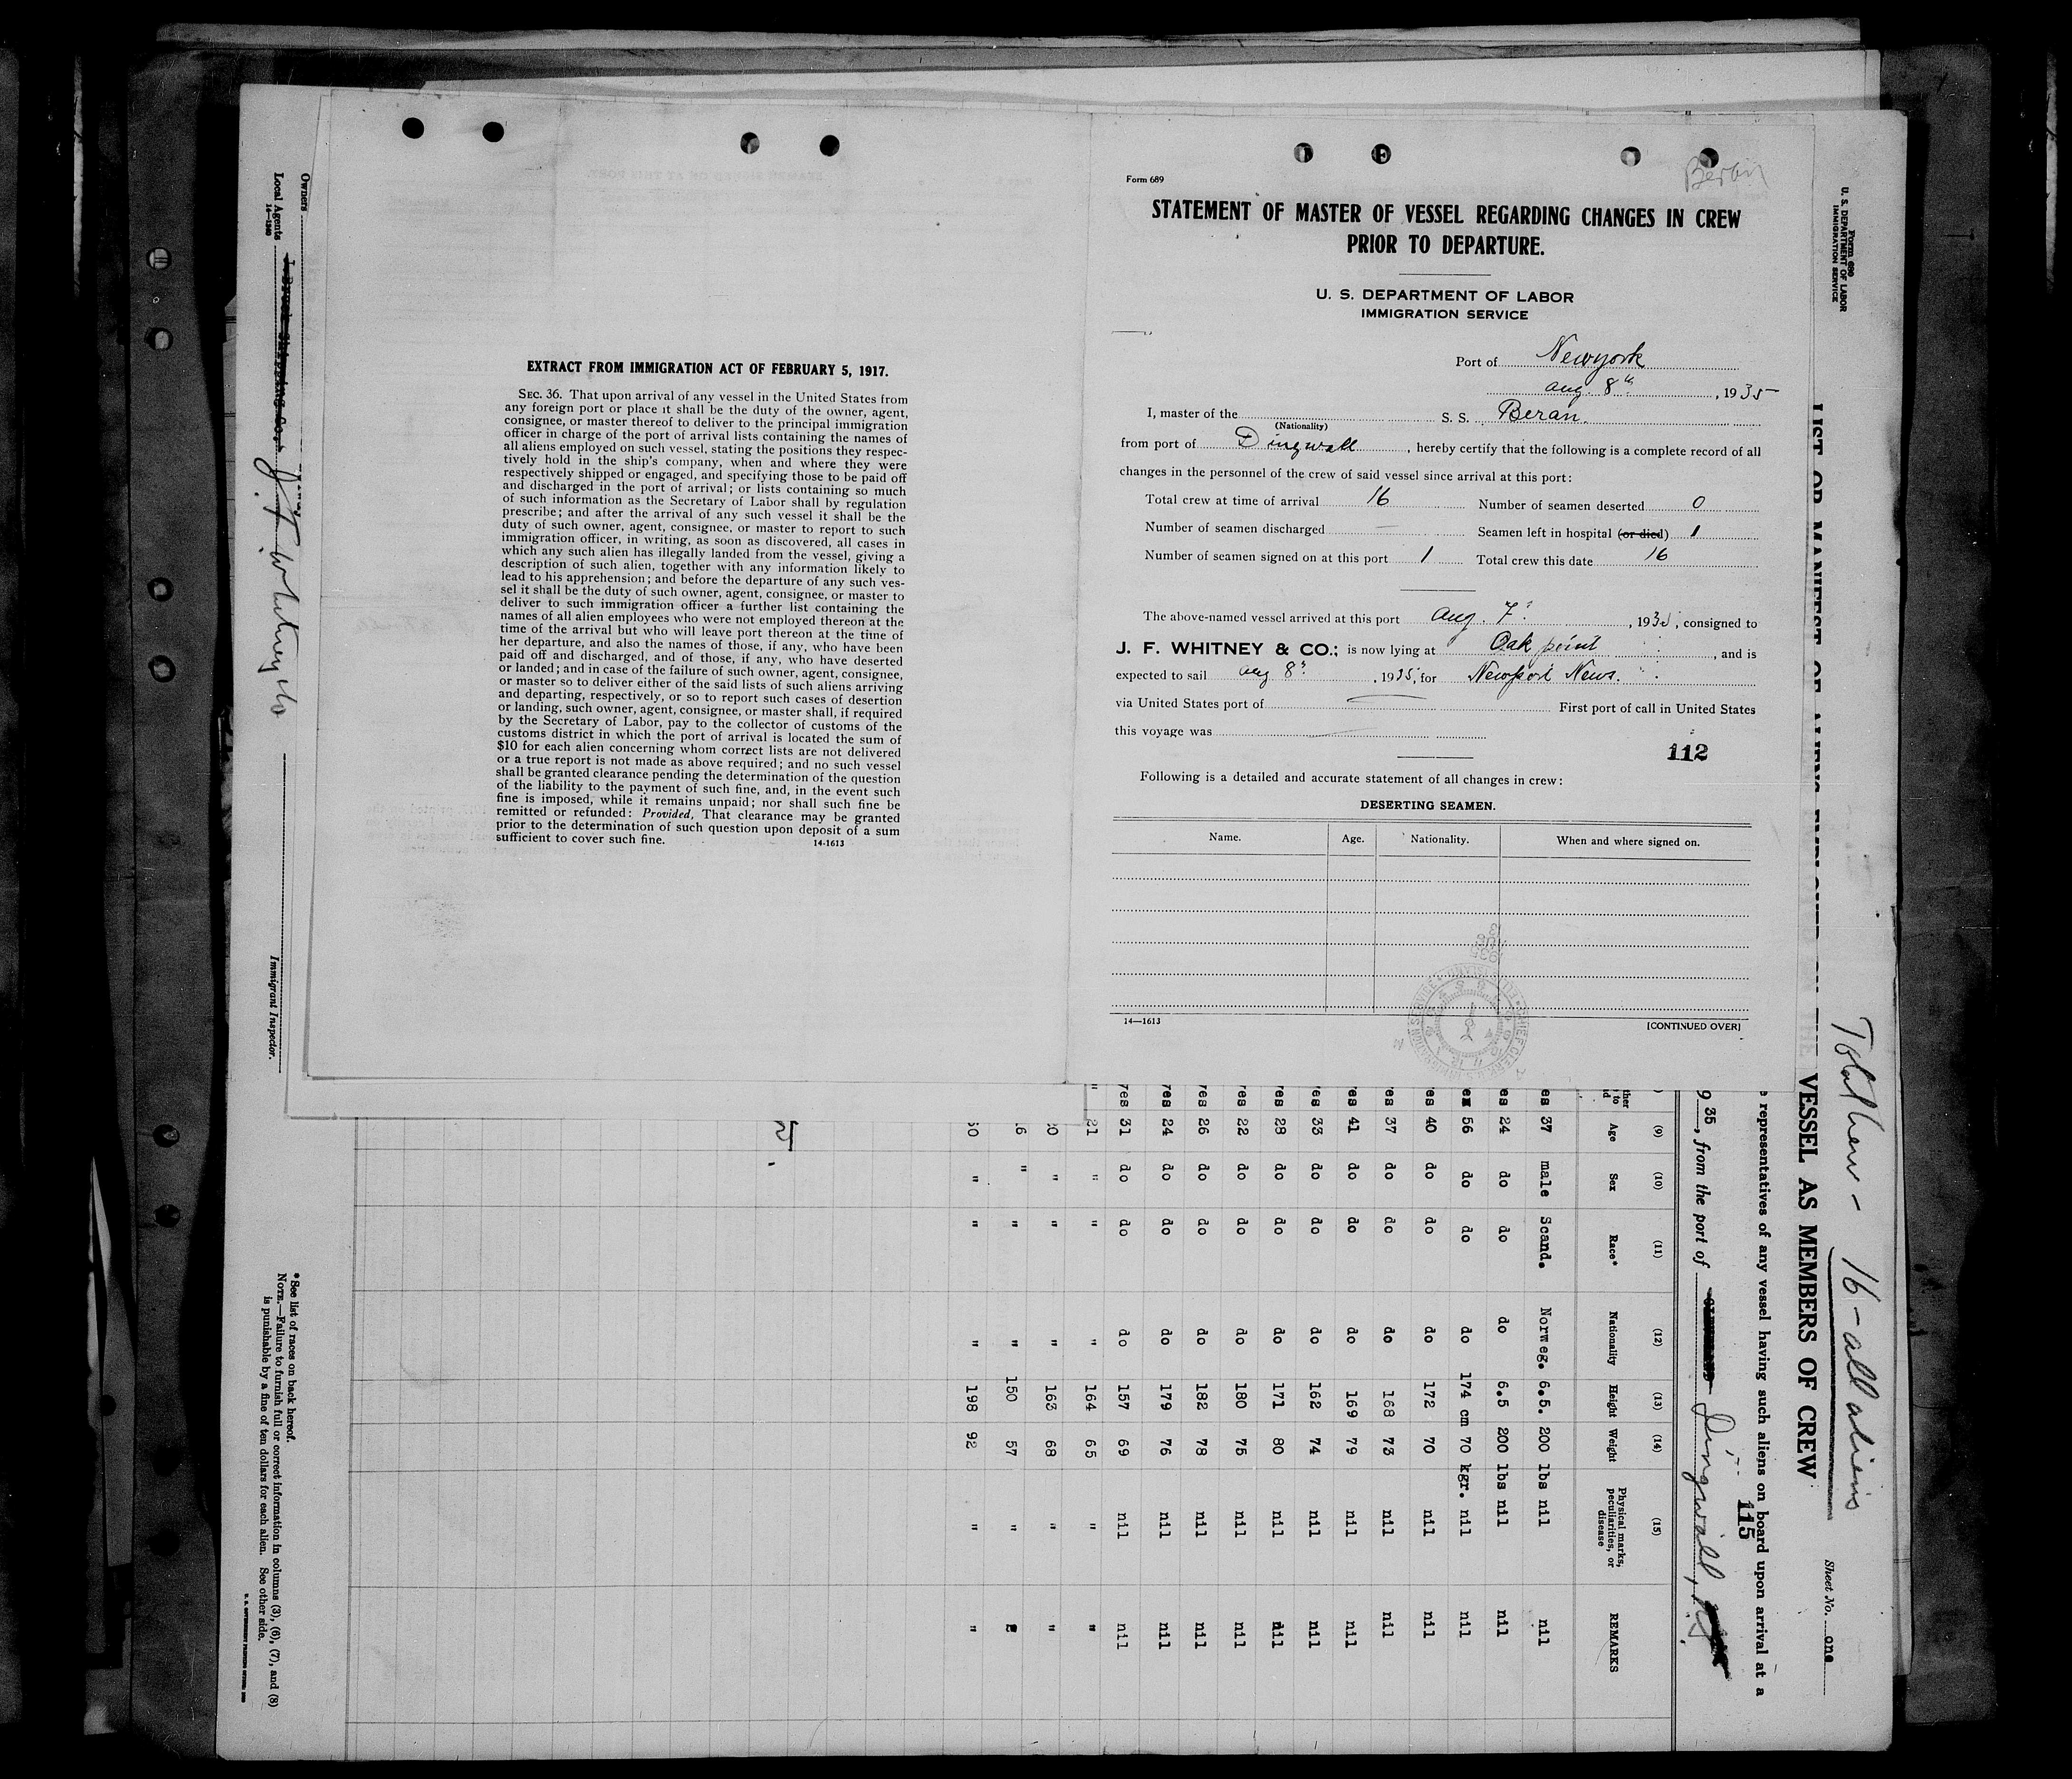 Form 689
STATEMENT OF MASTER OF VESSEL REGARDING CHANGES IN CREW
PRIOR TO DEPARTURE.
U. S. DEPARTMENT OF LABOR
IMMIGRATION SERVICE
Port of Newyork
Aug. 8th, 1935
I, master of the S. S. Beran.
(Nationality)
from port of Dingwall, hereby certify that the following is a complete record of all
changes in the personnel of the crew of said vessel since arrival at this port:
Total crew at time of arrival 16 Number of seamen deserted 0
Number of seamen discharged — Seamen left in hospital (or died) 1
Number of seamen signed on at this port 1 Total crew this date 16
The above-named vessel arrived at this port Aug. 7, 1935, consigned to
J. F. WHITNEY & CO.; is now lying at Oak point, and is
expected to sail Aug 8th, 1935, for Newport News.
via United States port of First port of call in United States
this voyage was
112
Following is a detailed and accurate statement of all changes in crew:
DESERTING SEAMEN.
Name. Age. Nationality. When and where signed on.
14—1613 [CONTINUED OVER]
EXTRACT FROM IMMIGRATION ACT OF FEBRUARY 5, 1917.
SEC. 36. That upon arrival of any vessel in the United States from
any foreign port or place it shall be the duty of the owner, agent,
consignee, or master thereof to deliver to the principal immigration
officer in charge of the port of arrival lists containing the names of
all aliens employed on such vessel, stating the positions they respec-
tively hold in the ship's company, when and where they were
respectively shipped or engaged, and specifying those to be paid off
and discharged in the port of arrival; or lists containing so much
of such information as the Secretary of Labor shall by regulation
prescribe; and after the arrival of any such vessel it shall be the
duty of such owner, agent, consignee, or master to report to such
immigration officer, in writing, as soon as discovered, all cases in
which any such alien has illegally landed from the vessel, giving a
description of such alien, together with any information likely to
lead to his apprehension; and before the departure of any such ves-
sel it shall be the duty of such owner, agent, consignee, or master to
deliver to such immigration officer a further list containing the
names of all alien employees who were not employed thereon at the
time of the arrival but who will leave port thereon at the time of
her departure, and also the names of those, if any, who have been
paid off and discharged, and of those, if any, who have deserted
or landed; and in case of the failure of such owner, agent, consignee,
or master so to deliver either of the said lists of such aliens arriving
and departing, respectively, or so to report such cases of desertion
or landing, such owner, agent, consignee, or master shall, if required
by the Secretary of Labor, pay to the collector of customs of the
customs district in which the port of arrival is located the sum of
$10 for each alien concerning whom correct lists are not delivered
or a true report is not made as above required; and no such vessel
shall be granted clearance pending the determination of the question
of the liability to the payment of such fine, and, in the event such
fine is imposed, while it remains unpaid; nor shall such fine be
remitted or refunded: Provided, That clearance may be granted
prior to the determination of such question upon deposit of a sum
sufficient to cover such fine.
14-1613
Form 680
U. S. DEPARTMENT OF LABOR
IMMIGRATION SERVICE
Total crew - 16 - all aliens
Sheet No. one
VESSEL AS MEMBERS OF CREW
representatives of any vessel having such aliens on board upon arrival at a
115
35, from the port of Dingwall, N.S.
(9) (10) (11) (12) (13) (14) (15)
Age Sex Race* Nationality Height Weight Physical marks, peculiarities, or disease REMARKS
es 37 male Scand. Norweg. 6.5. 200 lbs nil nil
es 24 do do do 6.5 200 lbs nil nil
es 56 do do do 174 cm 70 kgr. nil nil
es 40 do do do 172 70 nil nil
es 37 do do do 168 73 nil nil
es 41 do do do 169 79 nil nil
es 33 do do do 162 74 nil nil
es 28 do do do 171 80 nil nil
es 22 do do do 180 75 nil nil
es 26 do do do 182 78 nil nil
yes 24 do do do 179 76 nil nil
yes 31 do do do 157 69 nil nil
" 21 " " " 164 65 " "
" " " 163 68 " "
6 " " " 150 57 "
" " " 198 92 " "
Owners
Local Agents J. F. Whitney & Co
14—1240
Immigrant Inspector.
* See list of races on back hereof.
NOTE.—Failure to furnish full or correct information in columns (3), (6), (7), and (8)
is punishable by a fine of ten dollars for each alien. See other side.